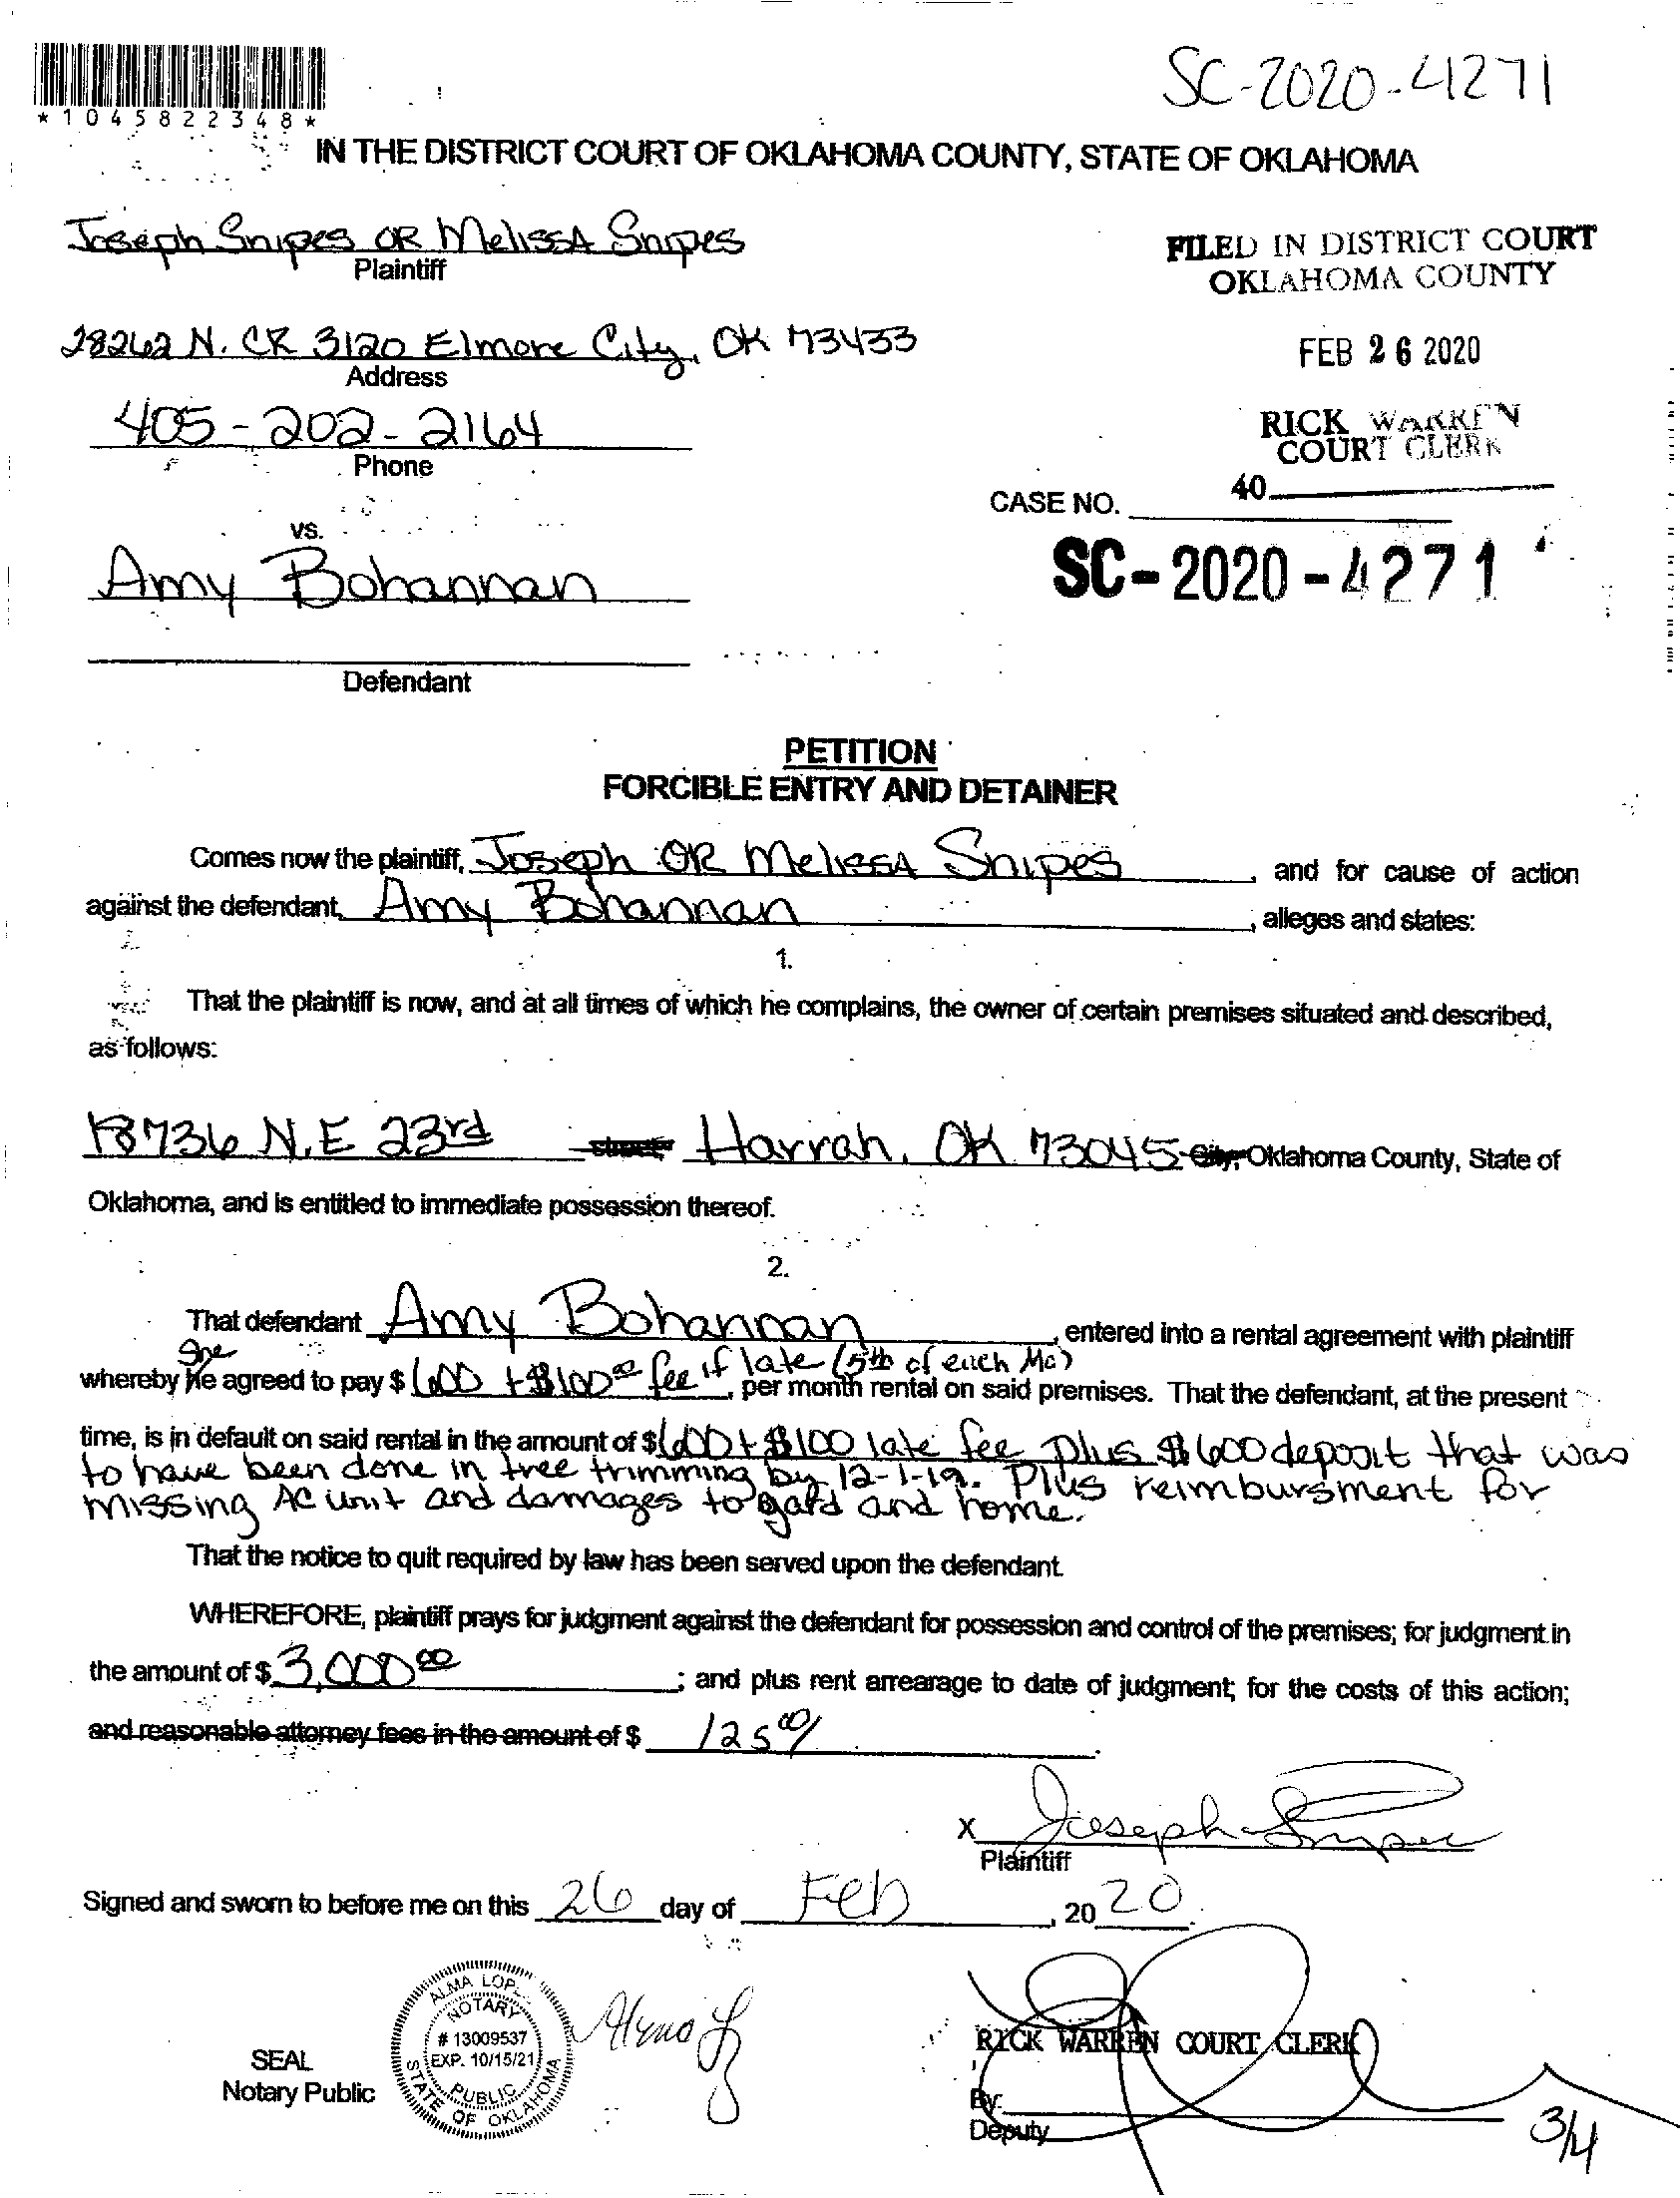 SC-2020-4271
*1045822348*
IN THE DISTRICT COURT OF OKLAHOMA COUNTY, STATE OF OKLAHOMA
Joseph Snipes OR Melissa Snipes
Plaintiff
FILED IN DISTRICT COURT
OKLAHOMA COUNTY
28262 N. CR 3120 Elmore City, OK 73433
Address
FEB 26 2020
405-202-2164
Phone
RICK WARREN
COURT CLERK
40
CASE NO.
vs.
SC-2020-4271
Amy Bohannan
Defendant
PETITION
FORCIBLE ENTRY AND DETAINER
Comes now the plaintiff, Joseph OR Melissa Snipes, and for cause of action
against the defendant, Amy Bohannan, alleges and states:
1.
That the plaintiff is now, and at all times of which he complains, the owner of certain premises situated and described,
as follows:
18736 N.E 23rd street Harrah, OK 73045 City, Oklahoma County, State of
Oklahoma, and is entitled to immediate possession thereof.
2.
That defendant Amy Bohannan, entered into a rental agreement with plaintiff
She
whereby he agreed to pay $ 600 + $100 00 fee if late (5th of each Mo), per month rental on said premises. That the defendant, at the present
time, is in default on said rental in the amount of $ 600 + $100 late fee plus $600 deposit that was
to have been done in tree trimming by 12-1-19. Plus reimbursment for
missing AC unit and damages to yard and home.
That the notice to quit required by law has been served upon the defendant.
WHEREFORE, plaintiff prays for judgment against the defendant for possession and control of the premises; for judgment in
the amount of $ 3,000 00; and plus rent arrearage to date of judgment; for the costs of this action;
and reasonable attorney fees in the amount of $ 125 00/.
X Joseph Snipes
Plaintiff
Signed and sworn to before me on this 26 day of Feb, 2020.
ALMA LOP
NOTARY
# 13009537
EXP. 10/15/21
PUBLIC
STATE OF OKLAHOMA
SEAL
Notary Public
RICK WARREN COURT CLERK
By:
Deputy
3/4